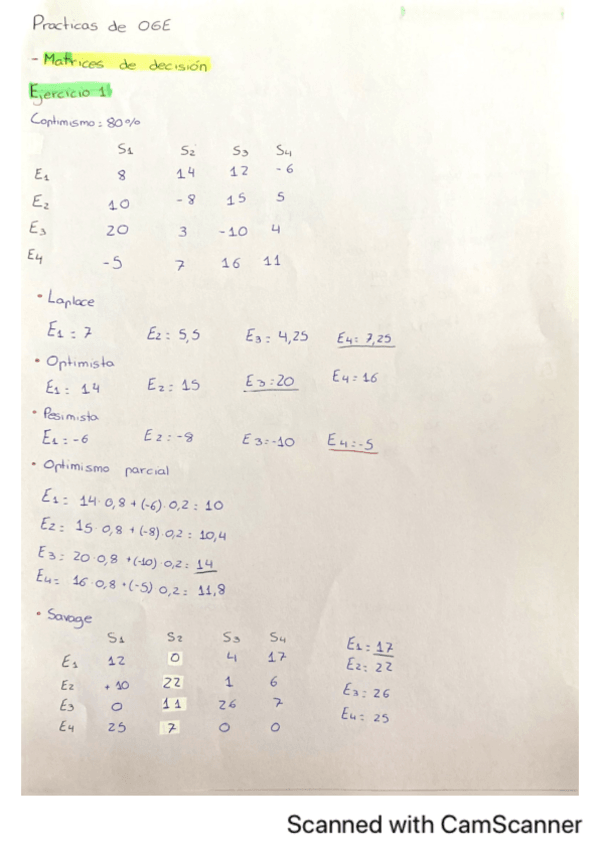 Practicas de OGE
- Matrices de decisión
Ejercicio 1
Coptimismo: 80%
S1 S2 S3 S4
E1 8 14 12 -6
E2 10 -8 15 5
E3 20 3 -10 4
E4 -5 7 16 11
• Laplace
E1 = 7 E2 = 5,5 E3 = 4,25 E4 = 7,25
• Optimista
E1 = 14 E2 = 15 E3 = 20 E4 = 16
• Pesimista
E1 = -6 E2 = -8 E3 = -10 E4 = -5
• Optimismo parcial
E1 = 14·0,8 + (-6)·0,2 = 10
E2 = 15·0,8 + (-8)·0,2 = 10,4
E3 = 20·0,8 + (-10)·0,2 = 14
E4 = 16·0,8 + (-5)·0,2 = 11,8
• Savage
S1 S2 S3 S4
E1 12 0 4 17 E1 = 17
E2 +10 22 1 6 E2 = 22
E3 0 11 26 7 E3 = 26
E4 25 7 0 0 E4 = 25
Scanned with CamScanner